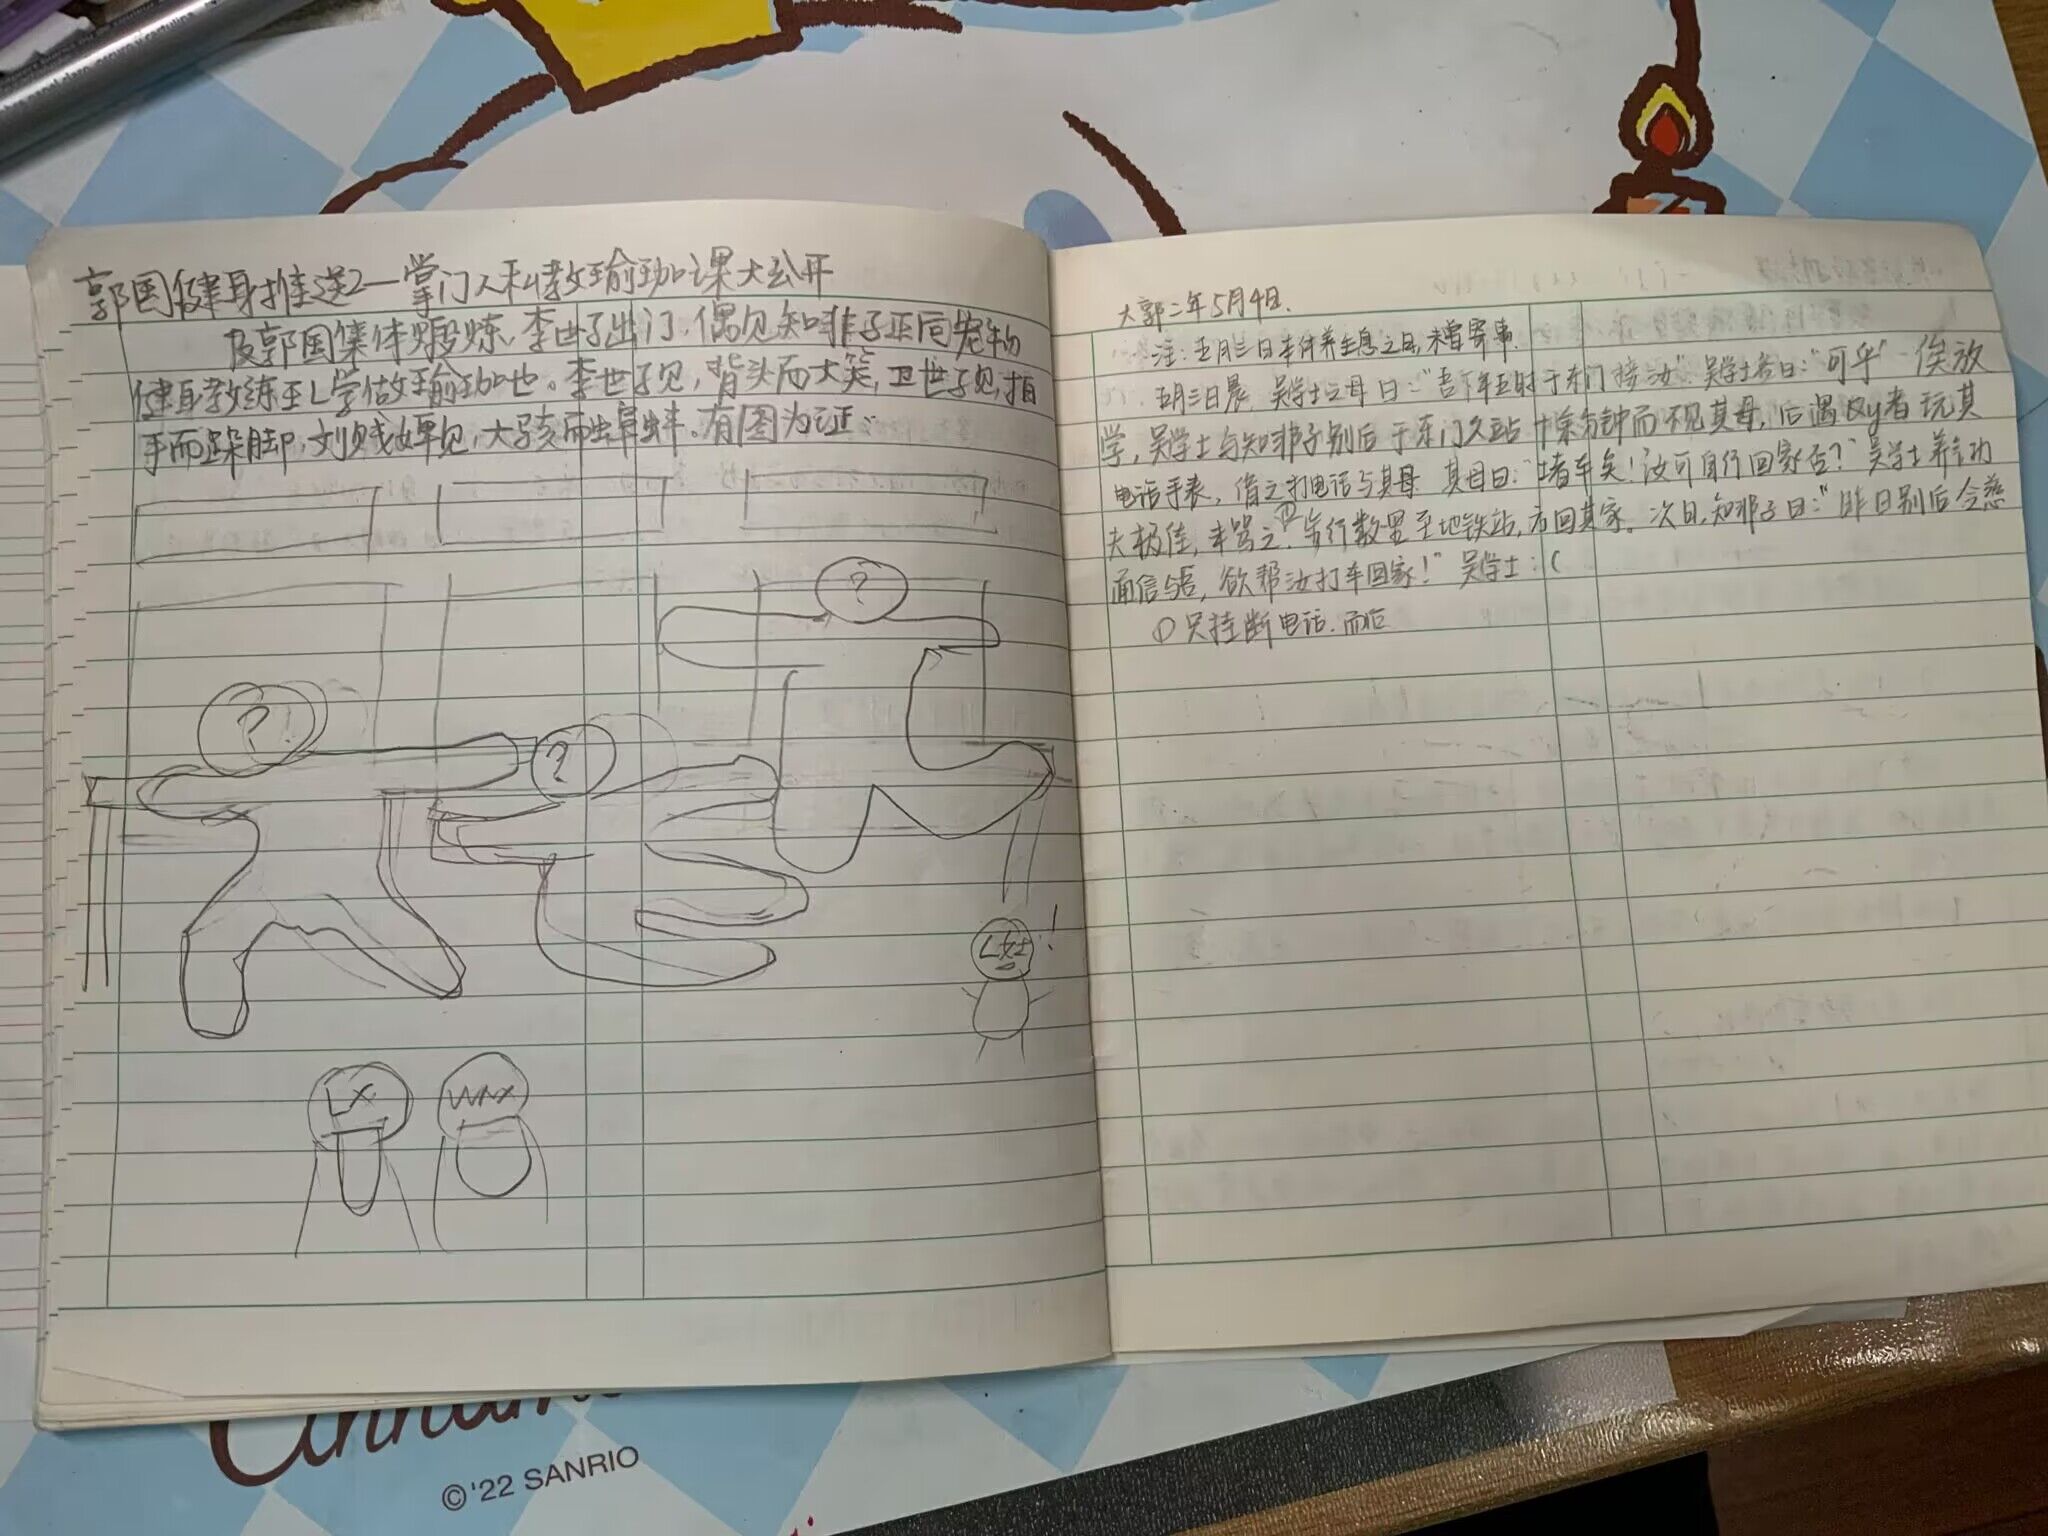 郭国健身推送2—掌门人私教瑜珈课大公开
及郭国集体煅炼,李世子出门,偶见知非子正同宠物
健身教练王L学做瑜珈也。李世子见,背头而大笑,卫世子见,指
手而跺脚,刘贱婢见,大孩而蚌。有图为证:
?
?
?
L女士!
LX
WNX
大郭二年5月4日.
注:五月三日本休养生息之日,未曾寄事.
五月三日晨,吴学士之母曰:"吾下午五时于东门接汝".吴学士答曰:"可乎"一俟放
学,吴学士与知非子别后于东门久站十余分钟而不见其母,后遇By者玩其
电话手表,借之打电话与其母.其母曰:"堵车矣!汝可自行回家否?"吴学士养气功
夫极佳,未骂之①,步行数里至地铁站,方回其家。次日,知非子曰:"昨日别后令慈
通信与吾,欲帮汝打车回家!"吴学士:(
①只挂断电话.而已
Cinnamo
©'22 SANRIO